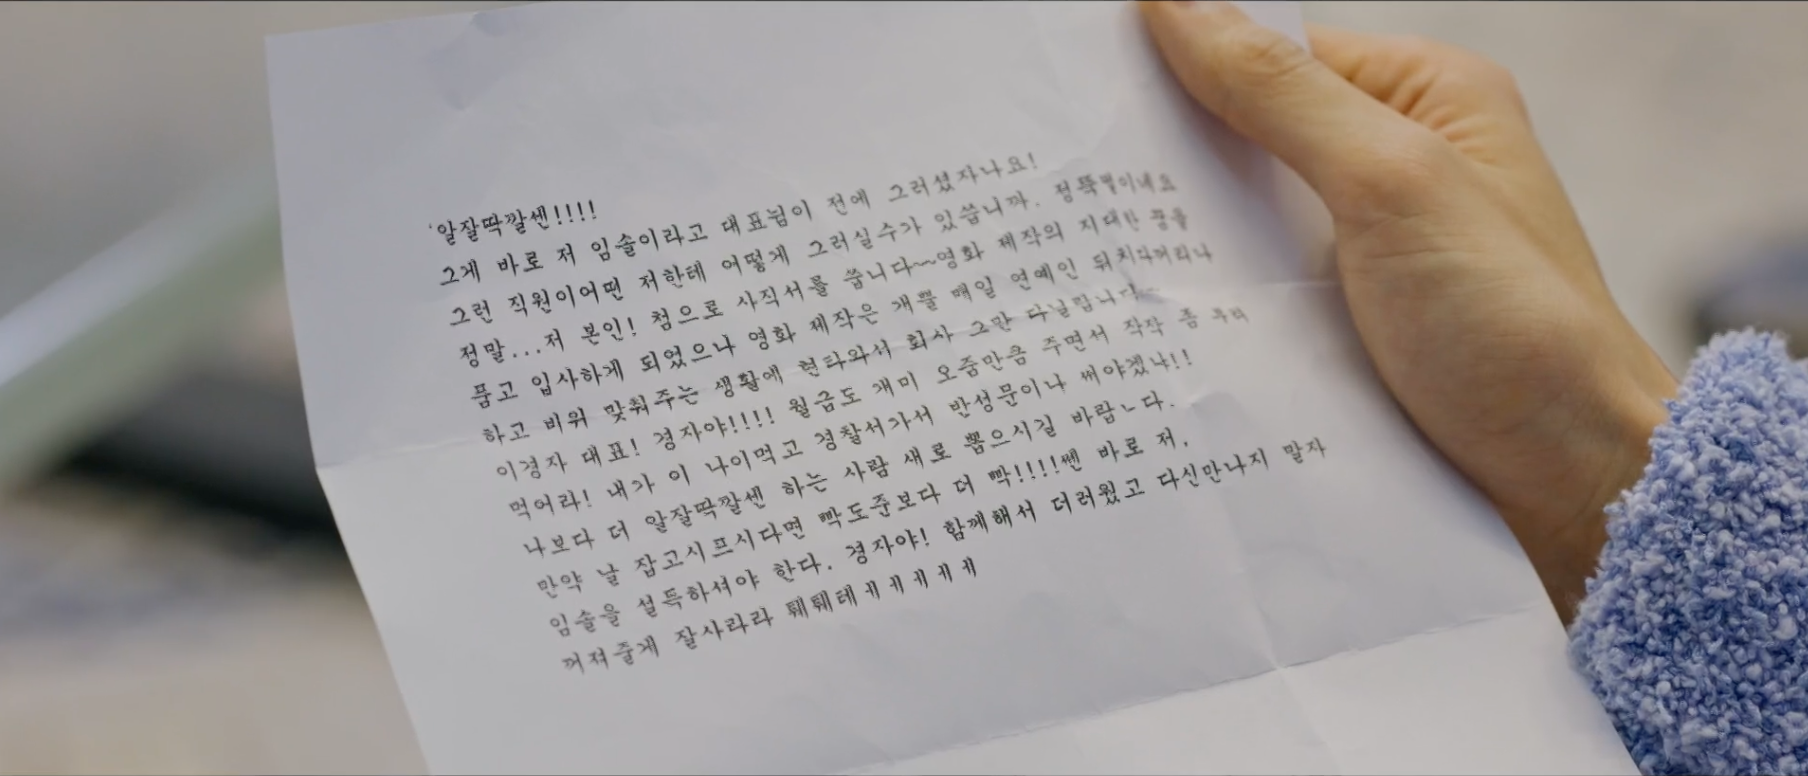 '알잘딱깔센!!!!
그게 바로 저 임솔이라고 대표님이 전에 그러셨자나요!
그런 직원이어떤 저한테 어떻게 그러실수가 있씁니까. 정뚝떨이네요
정말...저 본인! 첨으로 사직서를 씁니다~영화 제작의 지대한 꿈을
품고 입사하게 되었으나 영화 제작은 개뿔 매일 연예인 뒤치다꺼리나
하고 비위 맞춰주는 생활에 현타와서 회사 그만 다닐랍니다~
이경자 대표! 경자야!!!! 월급도 개미 오줌만큼 주면서 작작 좀 부려
먹어라! 내가 이 나이먹고 경찰서가서 반성문이나 써야겠냐!!
나보다 더 알잘딱깔센 하는 사람 새로 뽑으시길 바람ㄴ다.
만약 날 잡고시프시다면 빡도준보다 더 빡!!!!쎈 바로 저,
임솔을 설득하셔야 한다. 경자야! 함께해서 더러웠고 다신만나지 말자
꺼져줄게 잘사라라 퉤퉤테ㅔㅔㅔㅔㅔ